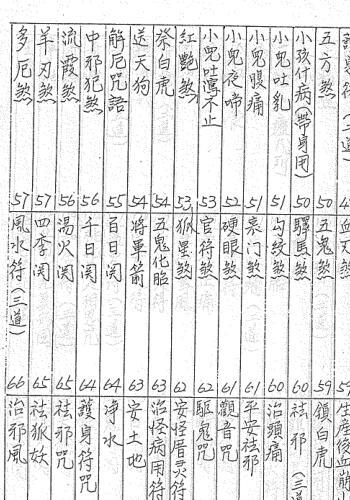 五方煞 50
小孩什病(帶身用) 50
小兒吐乳 51
小兒腹痛 51
小兒夜啼 52
小兒吐瀉不止 53
紅艷煞 53
祭白虎 54
送天狗 54
解厄咒語 55
中邪犯煞 56
流霞煞 56
羊刃煞 57
多厄煞 57
血刃煞 59
五鬼煞 59
驛馬煞 60
勾絞煞 60
喪門煞 61
硬眼煞 61
官符煞 62
孤星煞 62
五鬼化胎 63
將軍箭 63
百日関 64
千日関 64
湯火関 65
四季関 65
風水符(三道) 66
生産後血崩
鎮白虎
祛邪(三道)
治頭痛
平安祛邪
觀音咒
驅鬼咒
安怪厝灵符
治怪病用符
安土地
净水
護身符咒
祛邪咒
祛狐妖
治邪風